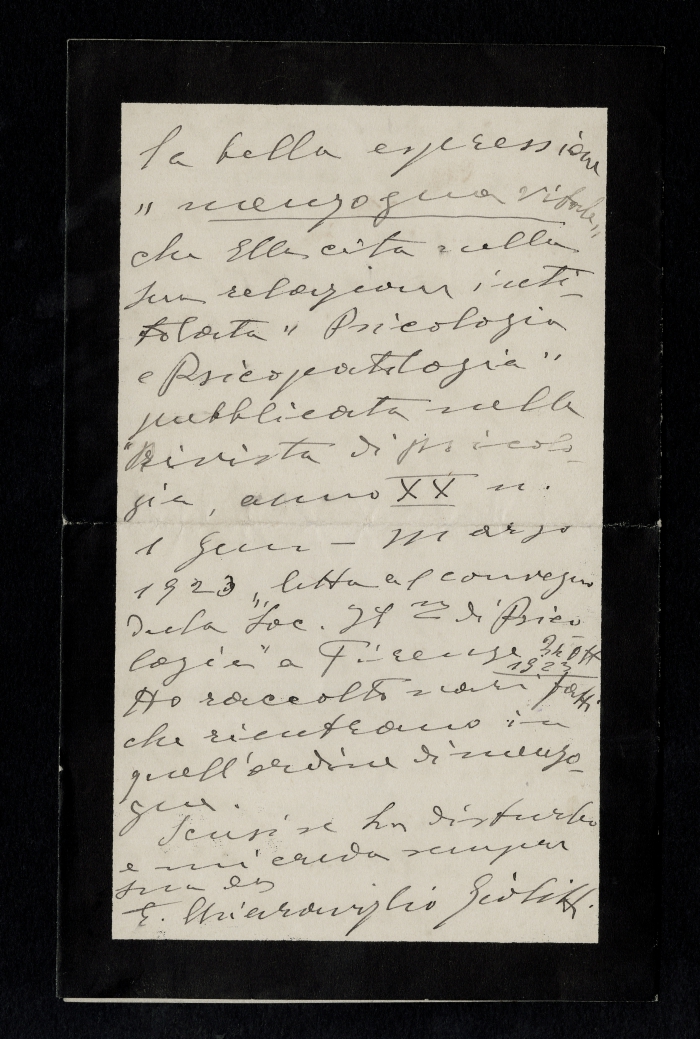 la bella espressione
" menzogna vitale "
che Ella cita nella
sua relazione inti-
tolata " Psicologia
e Psicopatologia "
pubblicata nella
"Rivista di psicolo-
gia, anno XX n.
1 Genn - Marzo
1923 " letta al convegno
della "Soc. It na di Psico
logia" a Firenze Ott
1923
Ho raccolto vari fatti
che rientrano in
quell'ordine di menzo-
gne.
Scusi se ho disturbo
e mi creda sempre
sua
E. Chiaraviglio Giolitti.